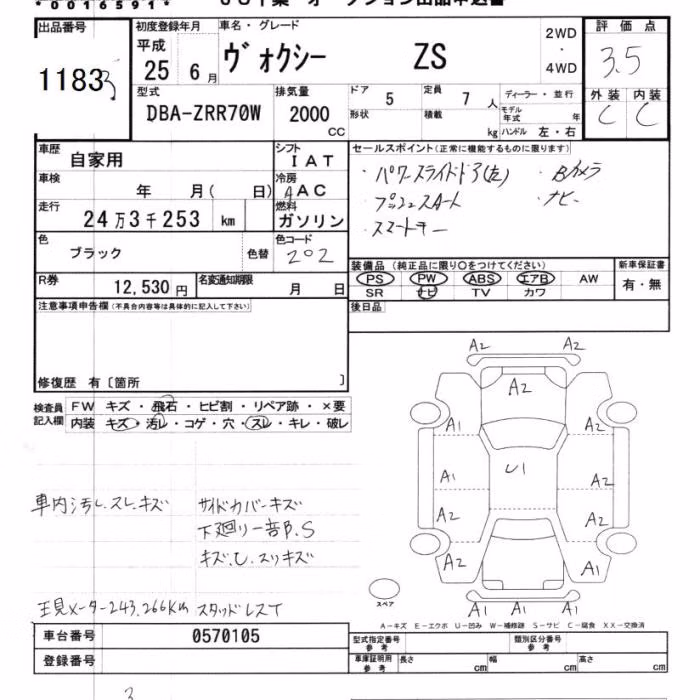 *00165591*
出品番号 初度登録年月 車名・グレード 評価点
1183 平成 25 6月 ヴォクシー ZS 2WD・4WD 3.5
型式 排気量 ドア 5 定員 7人 ディーラー・並行 外装 内装
DBA-ZRR70W 2000CC 形状 積載 kg モデル年式 年 C C
ハンドル 左・右
車歴 自家用 シフト IAT セールスポイント(正常に機能するものに限ります)
車検 年 月(日) 冷房 AAC ・パワースライドドア(左) ・Bカメラ
走行 24万3千253 km 燃料 ガソリン ・プッシュスタート ・ナビ
・スマートキー
色 ブラック 色替 色コード 202
装備品(純正品に限り○をつけてください) 新車保証書
R券 12,530円 名変通知期限 月 日 PS PW ABS エアB AW 有・無
SR ナビ TV カワ
注意事項申告欄(不具合内容等は具体的に記入して下さい) 後日品
修復歴 有〔箇所 〕
検査員記入欄 FW キズ・飛石・ヒビ割・リペア跡・×要
内装 キズ・汚レ・コゲ・穴・スレ・キレ・破レ
A2 A2
A2
A1 A2
A1 U1 A2
A2 A2
A2 A1
A1 A1 A1
車内汚レ.スレ.キズ サイドカバーキズ
下廻り一部P.S
キズ.U.スリキズ
現メーター243,266Km スタッドレスT
スペア
A－キズ E－エクボ U－凹み W－補修跡 S－サビ C－腐食 XX－交換済
車台番号 0570105 型式指定番号 参考 類別区分番号 参考
登録番号 車庫証明用 参考 長さ cm 幅 cm 高さ cm
3